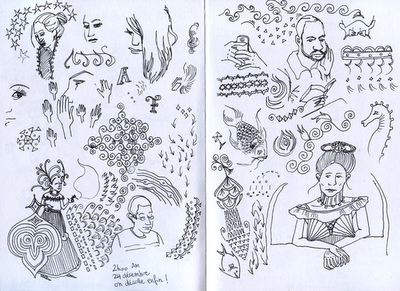 A
2hoo am
24 décembre
on décolle enfin !